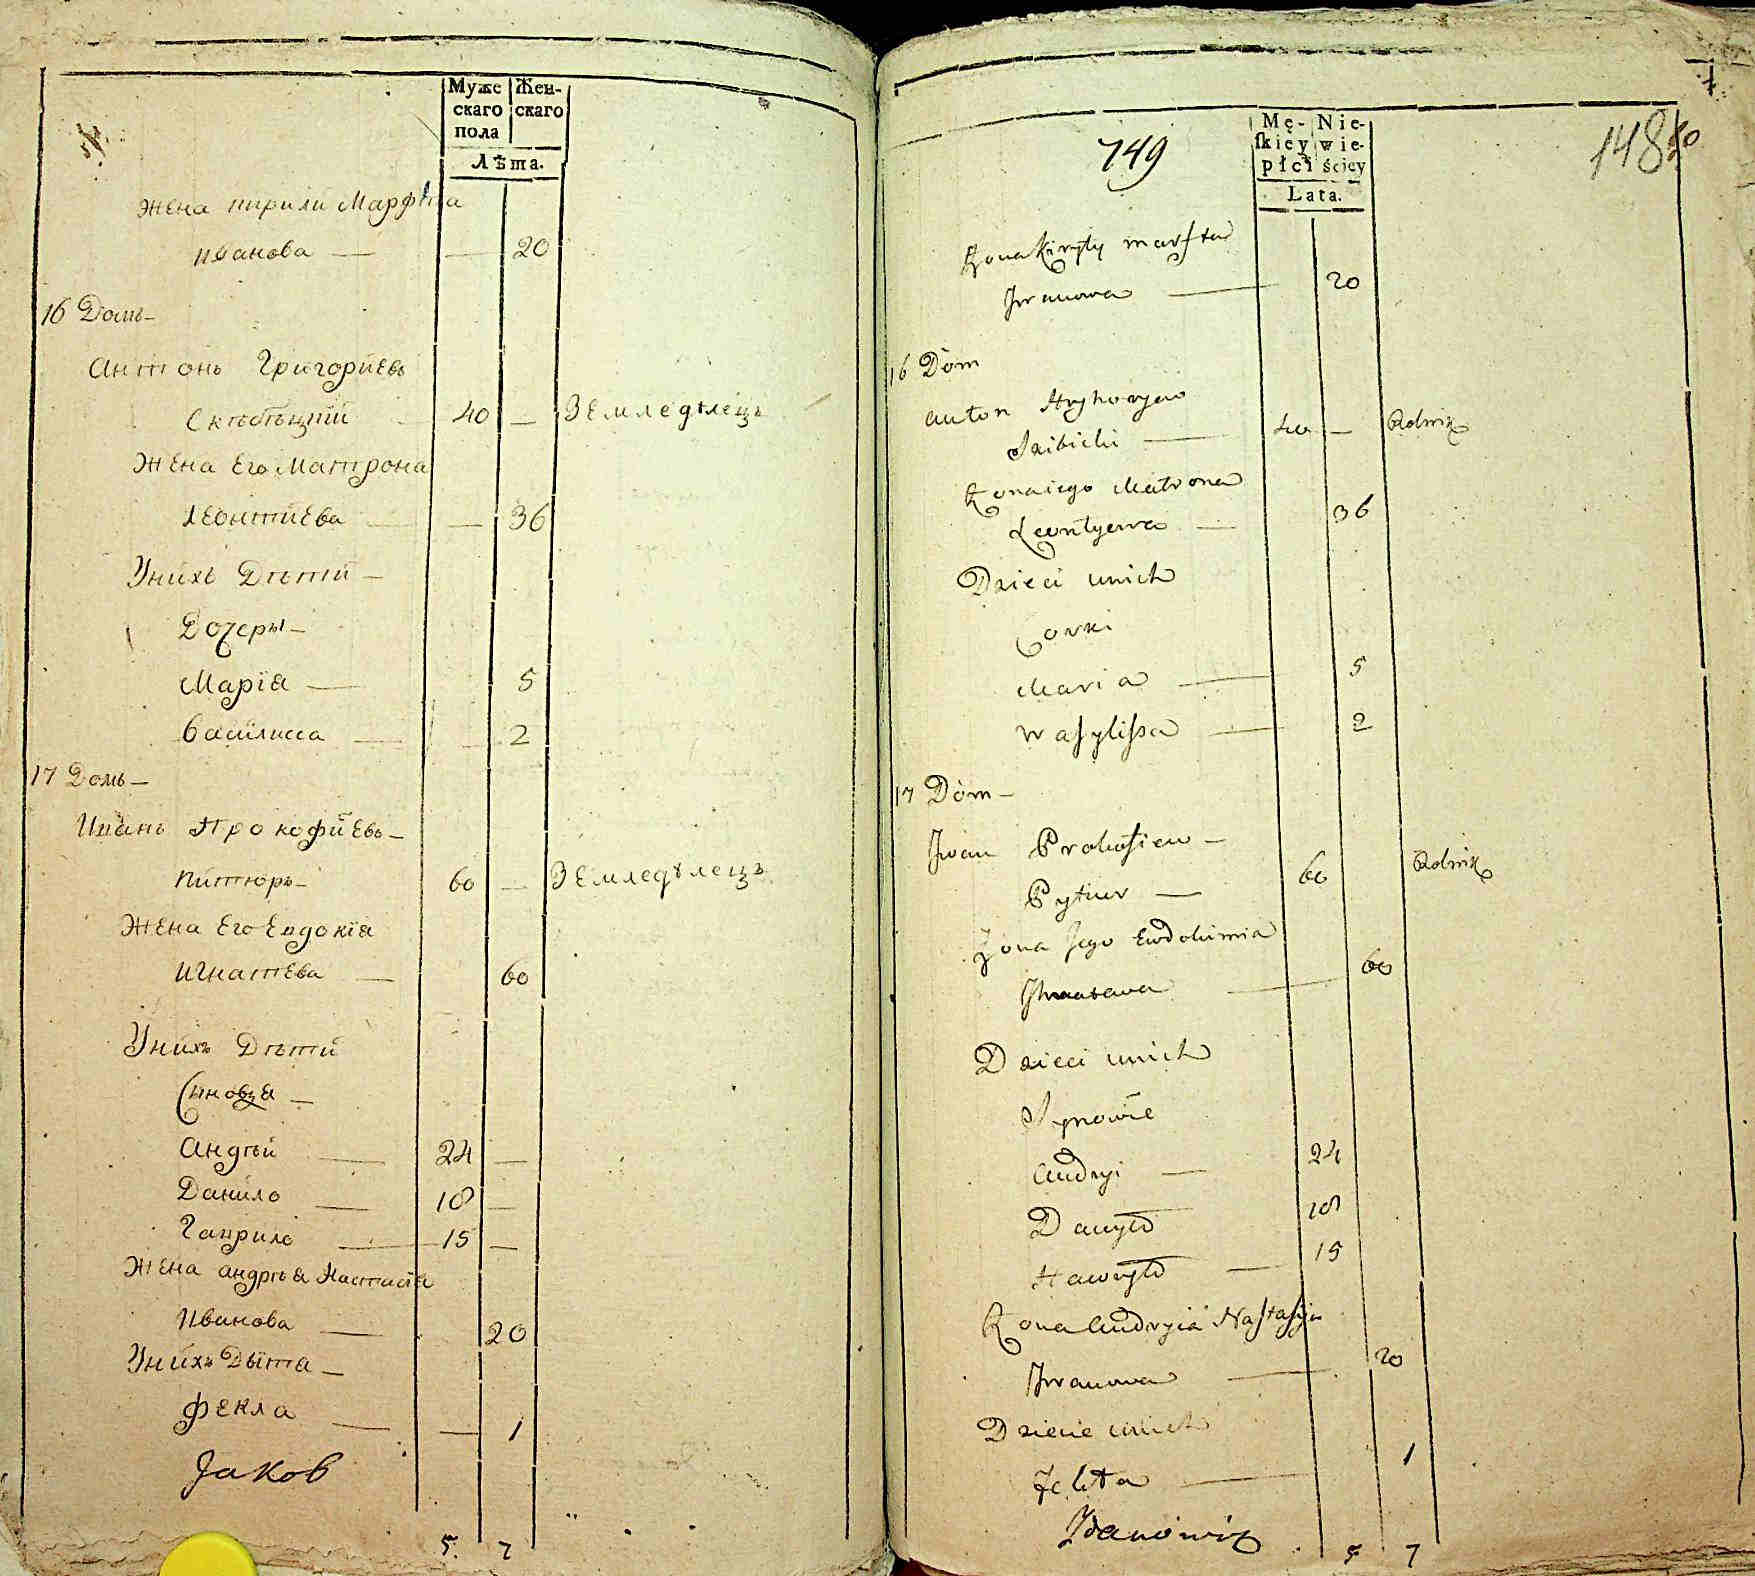 Муже
скаго
пола
Жен-
скаго
Лѣта.
Жена кирили Марфа
иванова — — 20
16 Домъ —
Антонъ Григориевъ
Скибѣцкий 40 — Земледѣлецъ
Жена Его Матрона
Леонтиева — — 36
Унихъ Дѣти —
Дочеры —
Мария — 5
Василисса — 2
17 Домъ —
Иванъ Прокофиевъ —
Питюръ — 60 — Земледѣлецъ
Жена Его Евдокия
Игнатева — 60
Унихъ Дѣти
Синовя —
Андрѣй — 24 —
Данило — 18 —
Гаврило — 15 —
Жена андрѣя Настасия
Иванова — 20
Унихъ Дѣтя —
Фекла — — 1
Jаков
5. 7
749
148
Mę-
skiey
płci
Nie-
wie-
ściey
Lata.
Żona Kiryły marfta
Jwanowa — 20
16 Dom
Anton Hryhoryew
Skibicki — 40 — Rolnik
Żona iego Matrona
Leontyewa — 36
Dzieci unich
Corki
Maria — 5
Wasylissa — 2
17 Dom —
Jwan Prokofiew —
Pytiur — 60 Rolnik
Żona Jego Ewdokimia
Jhnatewa — 60
Dzieci unich
Synowie
Andryi — 24
Danyło 18
Hawryło — 15
Żona Andryia Nastasyia
Jwanowa — 20
Dziecie unich
Fekła — 1
5 7